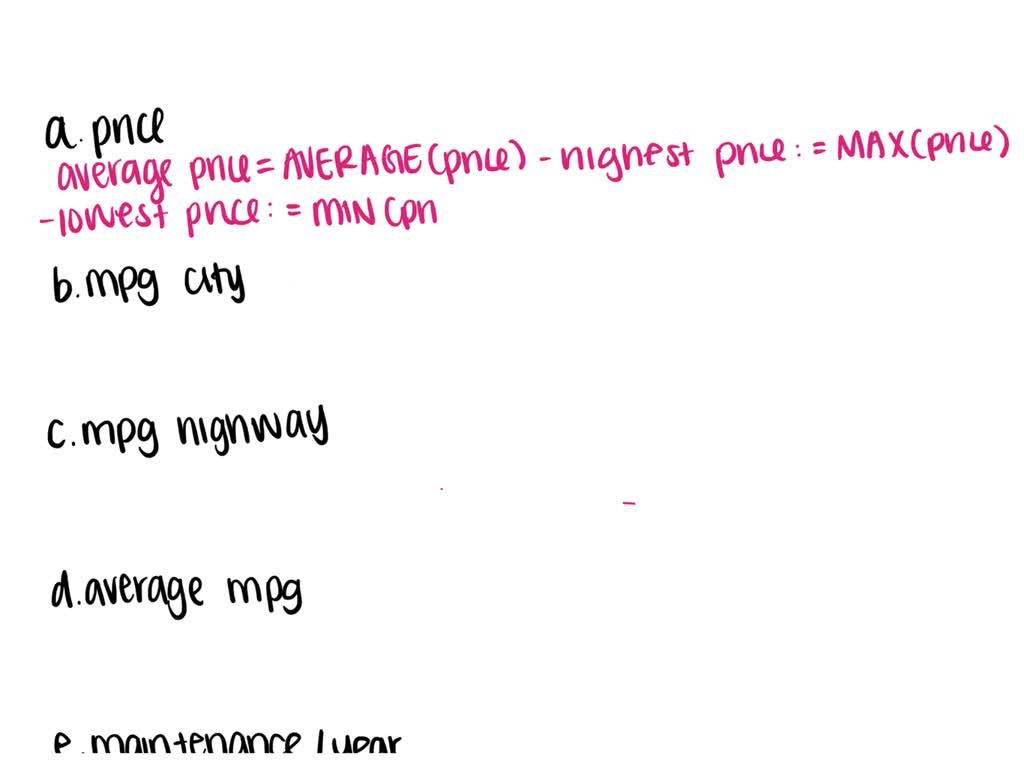 a. price
average price = AVERAGE(price) - highest price: = MAX(price)
- lowest price: = MIN(pri
b. mpg city
c. mpg highway
d. average mpg
e. maintenance / year